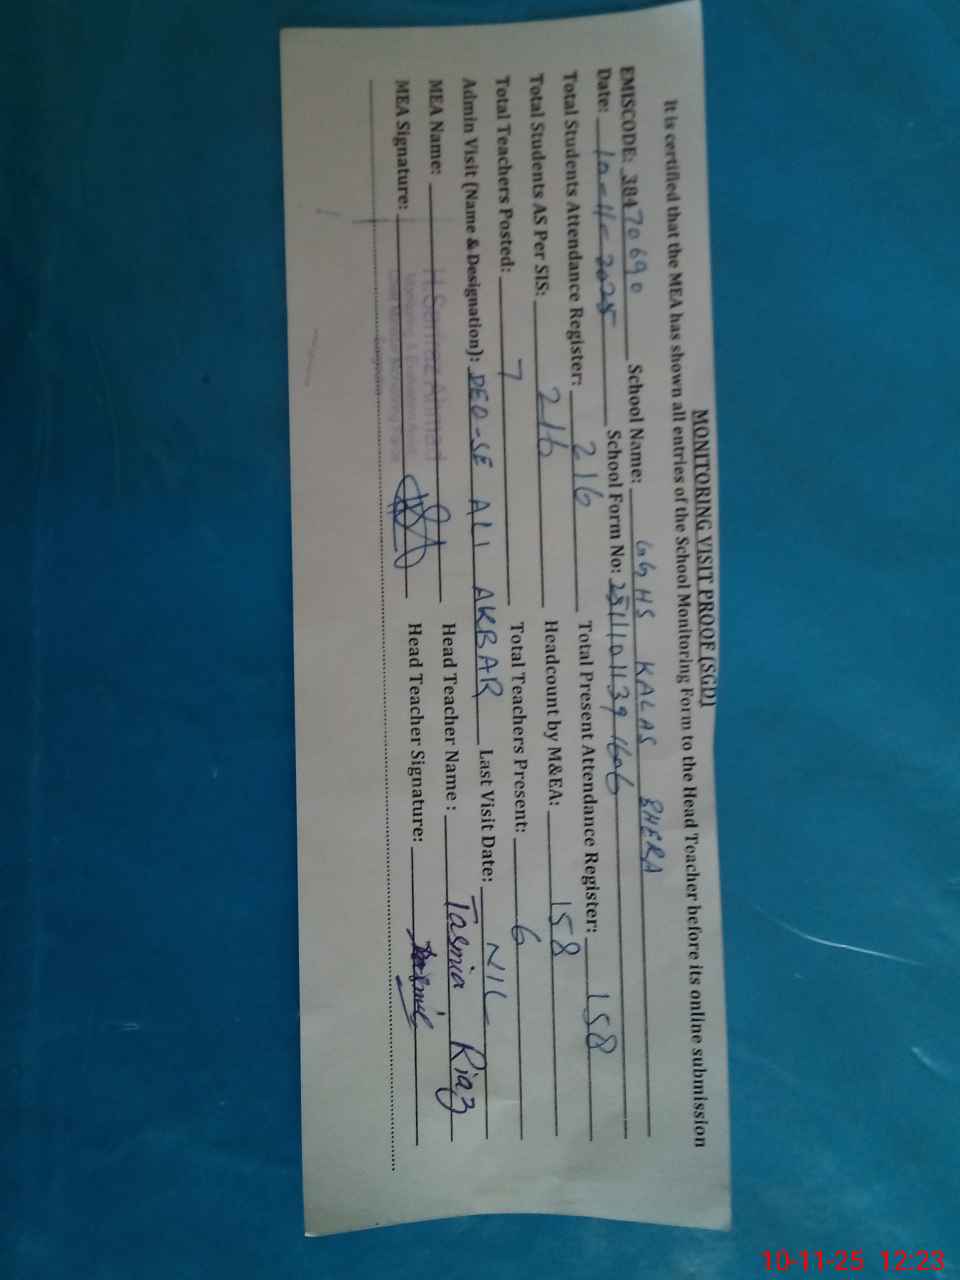 MONITORING VISIT PROOF (SGD)
It is certified that the MEA has shown all entries of the School Monitoring Form to the Head Teacher before its online submission
EMISCODE: 38470690 School Name: GGHS KALAS BHERA
Date: 10-11-2025 School Form No:
Total Students Attendance Register: 216 Total Present Attendance Register: 158
Total Students AS Per SIS: 216 Headcount by M&EA: 158
Total Teachers Posted: 7 Total Teachers Present: 6
Admin Visit (Name & Designation): DEO-SE ALI AKBAR Last Visit Date: NIL
MEA Name: Ahmad Head Teacher Name : Tasmia Riaz
MEA Signature: Head Teacher Signature:
10-11-25 12:23